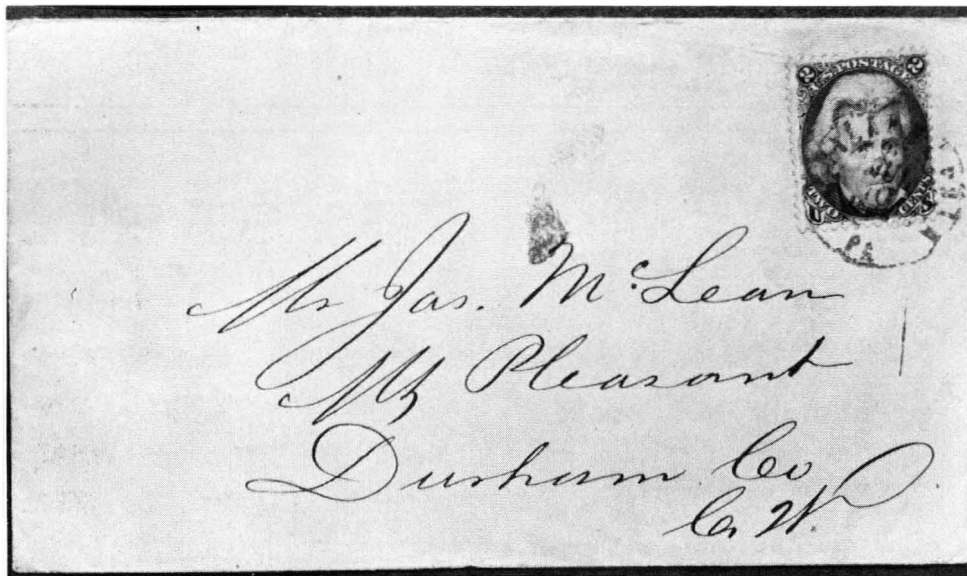 2 2
U.S. POSTAGE
TWO CENTS
U S
PA
Mr Jas. McLean
Mt Pleasant
Durham Co
C. W.